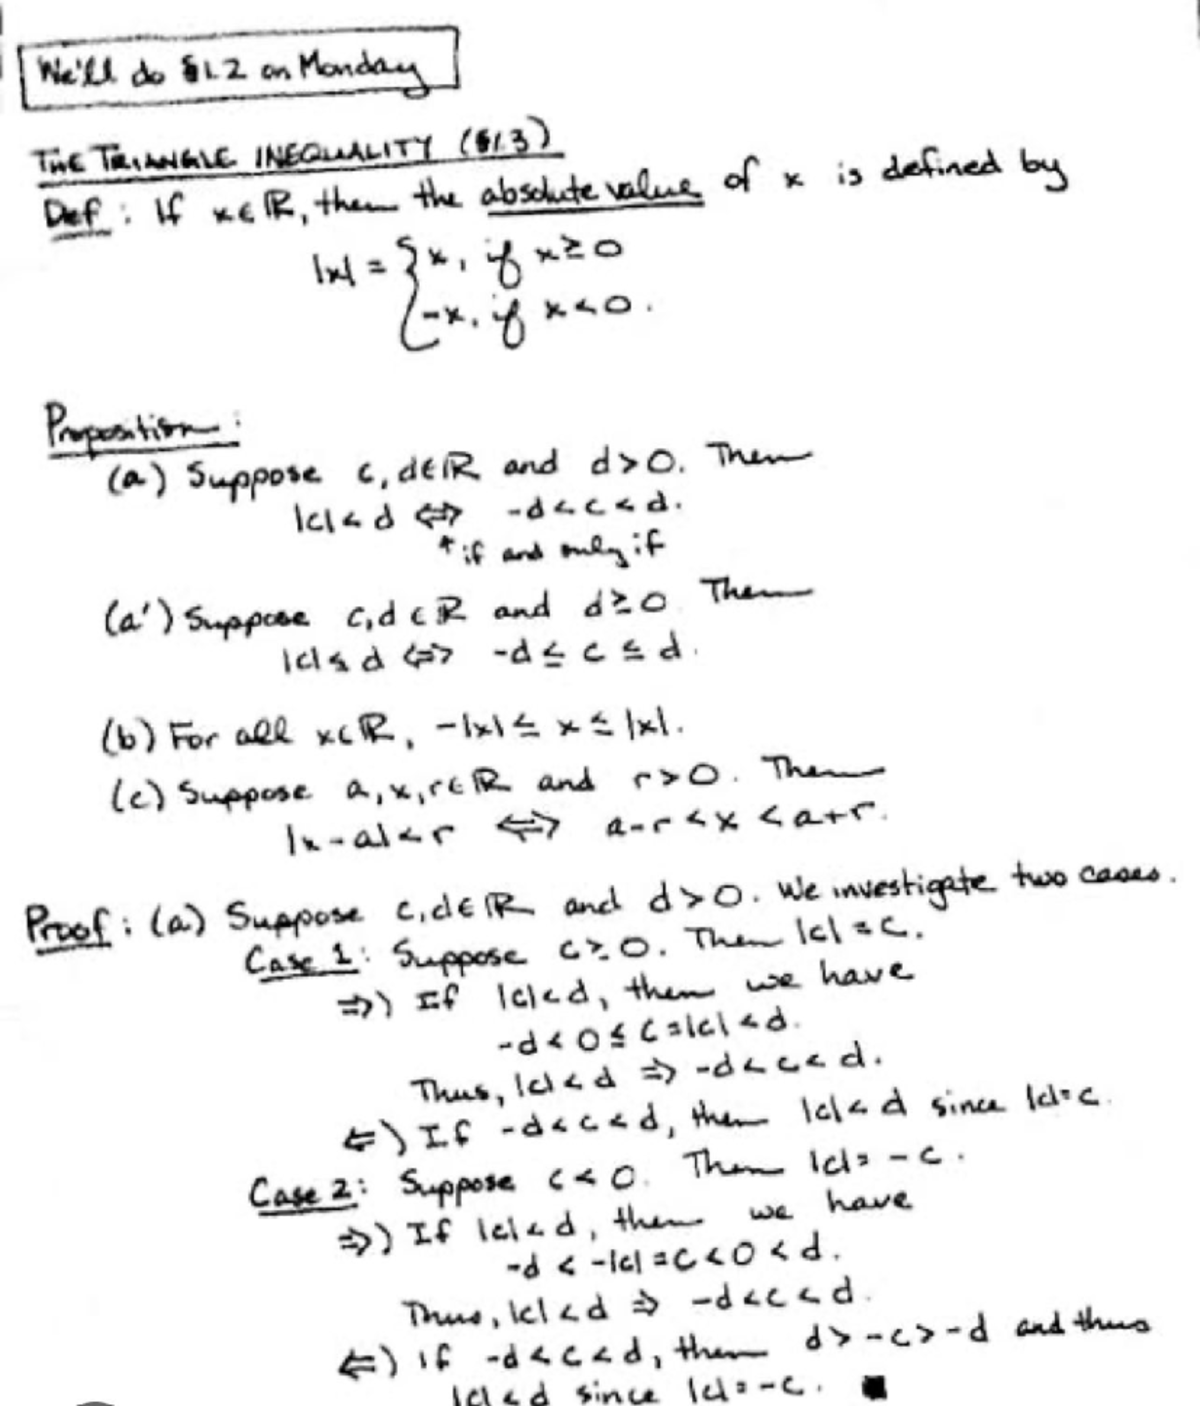 We'll do §1.2 on Monday
THE TRIANGLE INEQUALITY (§1.3)
Def: If x∈ℝ, then the absolute value of x is defined by
|x| = { x, if x≥0
-x, if x<0.
Proposition:
(a) Suppose c,d∈ℝ and d>0. Then
|c|<d ⇔ -d<c<d.
↑ if and only if
(a') Suppose c,d∈ℝ and d≥0 Then
|c|≤d ⇔ -d≤c≤d.
(b) For all x∈ℝ, -|x|≤x≤|x|.
(c) Suppose a,x,r∈ℝ and r>0. Then
|x-a|<r ⇔ a-r<x<a+r.
Proof: (a) Suppose c,d∈ℝ and d>0. We investigate two cases.
Case 1: Suppose c≥0. Then |c|=c.
⇒) If |c|<d, then we have
-d<0≤c=|c|<d.
Thus, |c|<d ⇒ -d<c<d.
⇐) If -d<c<d, then |c|<d since |c|=c.
Case 2: Suppose c<0. Then |c|=-c.
⇒) If |c|<d, then we have
-d<-|c|=c<0<d.
Thus, |c|<d ⇒ -d<c<d.
⇐) If -d<c<d, then d>-c>-d and thus
|c|<d since |c|=-c. ■